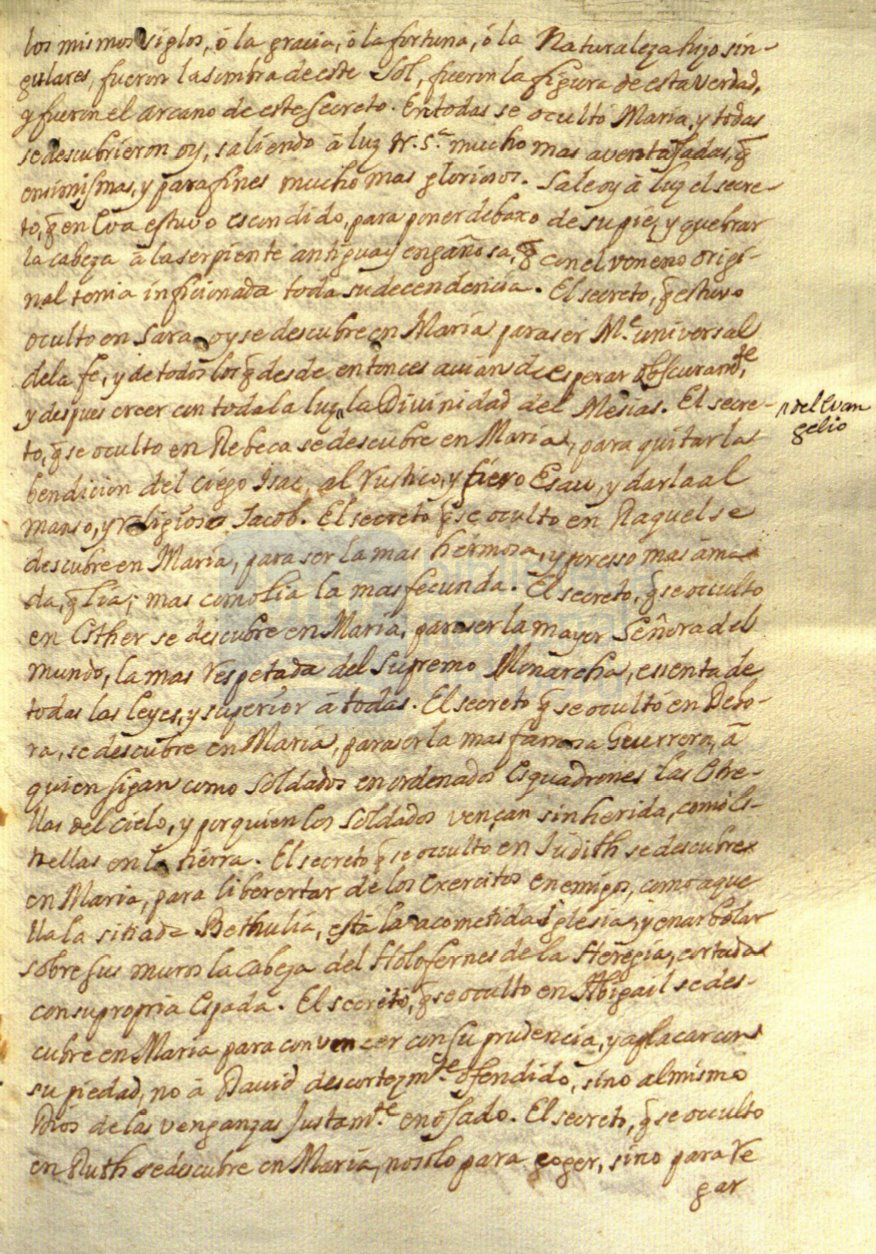 los mismos siglos, ò la gracia, ò la fortuna, ò la Naturaleza hijo sin-
gulares, fueron la sombra de este Sol, fueron la figura de esta verdad,
y fueron el arcano de este secreto. En todas se ocultò Maria, y todas
se descubrieron oy, saliendo â luz N. S.ª mucho mas aventajadas, q̃
en si mismas, y para fines mucho mas gloriosos. Sale oy â luz el secre-
to, q̃ en Eva estuvo escondido, para poner debaxo de su pie, y quebrar
la cabeza â la serpiente antigua y engañosa, q̃ con el veneno origi-
nal tenia inficionada toda su decendencia. El secreto, q̃ estuvo
oculto en Sara oy se descubre en Maria para ser M.e universal
de la fe, y de todos los q̃ desde entonces avian de esperar obscuram.te,
y despues creer con toda la luz la Divinidad del Mesias. El secre-
n del Evan
gelio
to, q̃ se oculto en Rebeca se descubre en Maria, para quitar la
bendicion del ciego Isac, al rustico, y fiero Esau, y darla al
manso, y religioso Jacob. El secreto q̃ se oculto en Raquel se
descubre en Maria, para ser la mas hermosa, y por esso mas ama-
da, q̃ Lia; mas como Lia la mas fecunda. El secreto, q̃ se occulto
en Esther se descubre en Maria, para ser la mayor Señora del
mundo, la mas respetada del Supremo Monarcha, essenta de
todas las leyes, y superior â todas. El secreto q̃ se ocultó en Debo-
ra, se descubre en Maria, para ser la mas famosa Guerrera, â
quien sigan como soldados en ordenados Esquadrones las Estre-
llas del cielo, y por quien los soldados vençan sin herida, como Es-
trellas en la tierra. El secreto q̃ se occulto en Judith se descubre
en Maria, para libertar de los Exercitos enemigos, como aque
lla la sitiada Bethulia, esta la acometida Iglesia, y enarbolar
sobre sus muros la cabeza del Holofernes de la Heregia, cortada
con su propria Espada. El secreto, q̃ se oculto en Abigail se des-
cubre en Maria para convencer con su prudencia, y aplacar con
su piedad, no â David descortezm.te ofendido, sino al mismo
Dios de las venganzas Justam.te enojado. El secreto, q̃ se occulto
en Ruth se descubre en Maria, no solo para coger, sino para re
gar